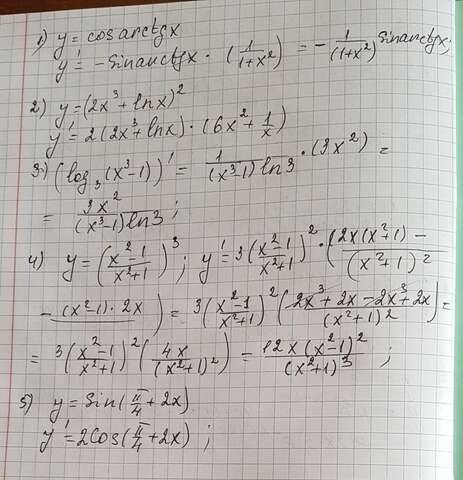 1) y = cos arctgx
y' = -Sinarctgx · (1/(1+x²)) = - 1/(1+x²) Sinarctgx;
2) y = (2x³ + lnx)²
y' = 2(2x³ + lnx) · (6x² + 1/x)
3) (log₃(x³-1))' = 1/((x³-1) ln3) · (3x²) =
= 3x²/((x³-1) ln3);
4) y = ((x²-1)/(x²+1))³; y' = 3((x²-1)/(x²+1))² · (2x(x²+1) -/(x²+1)²
- (x²-1)·2x) = 3((x²-1)/(x²+1))² ((2x³+2x-2x³+2x)/(x²+1)²) =
= 3((x²-1)/(x²+1))² (4x/(x²+1)²) = 12x(x²-1)²/(x²+1)³ ;
5) y = Sin(π/4 + 2x)
y' = 2Cos(π/4 + 2x) ;